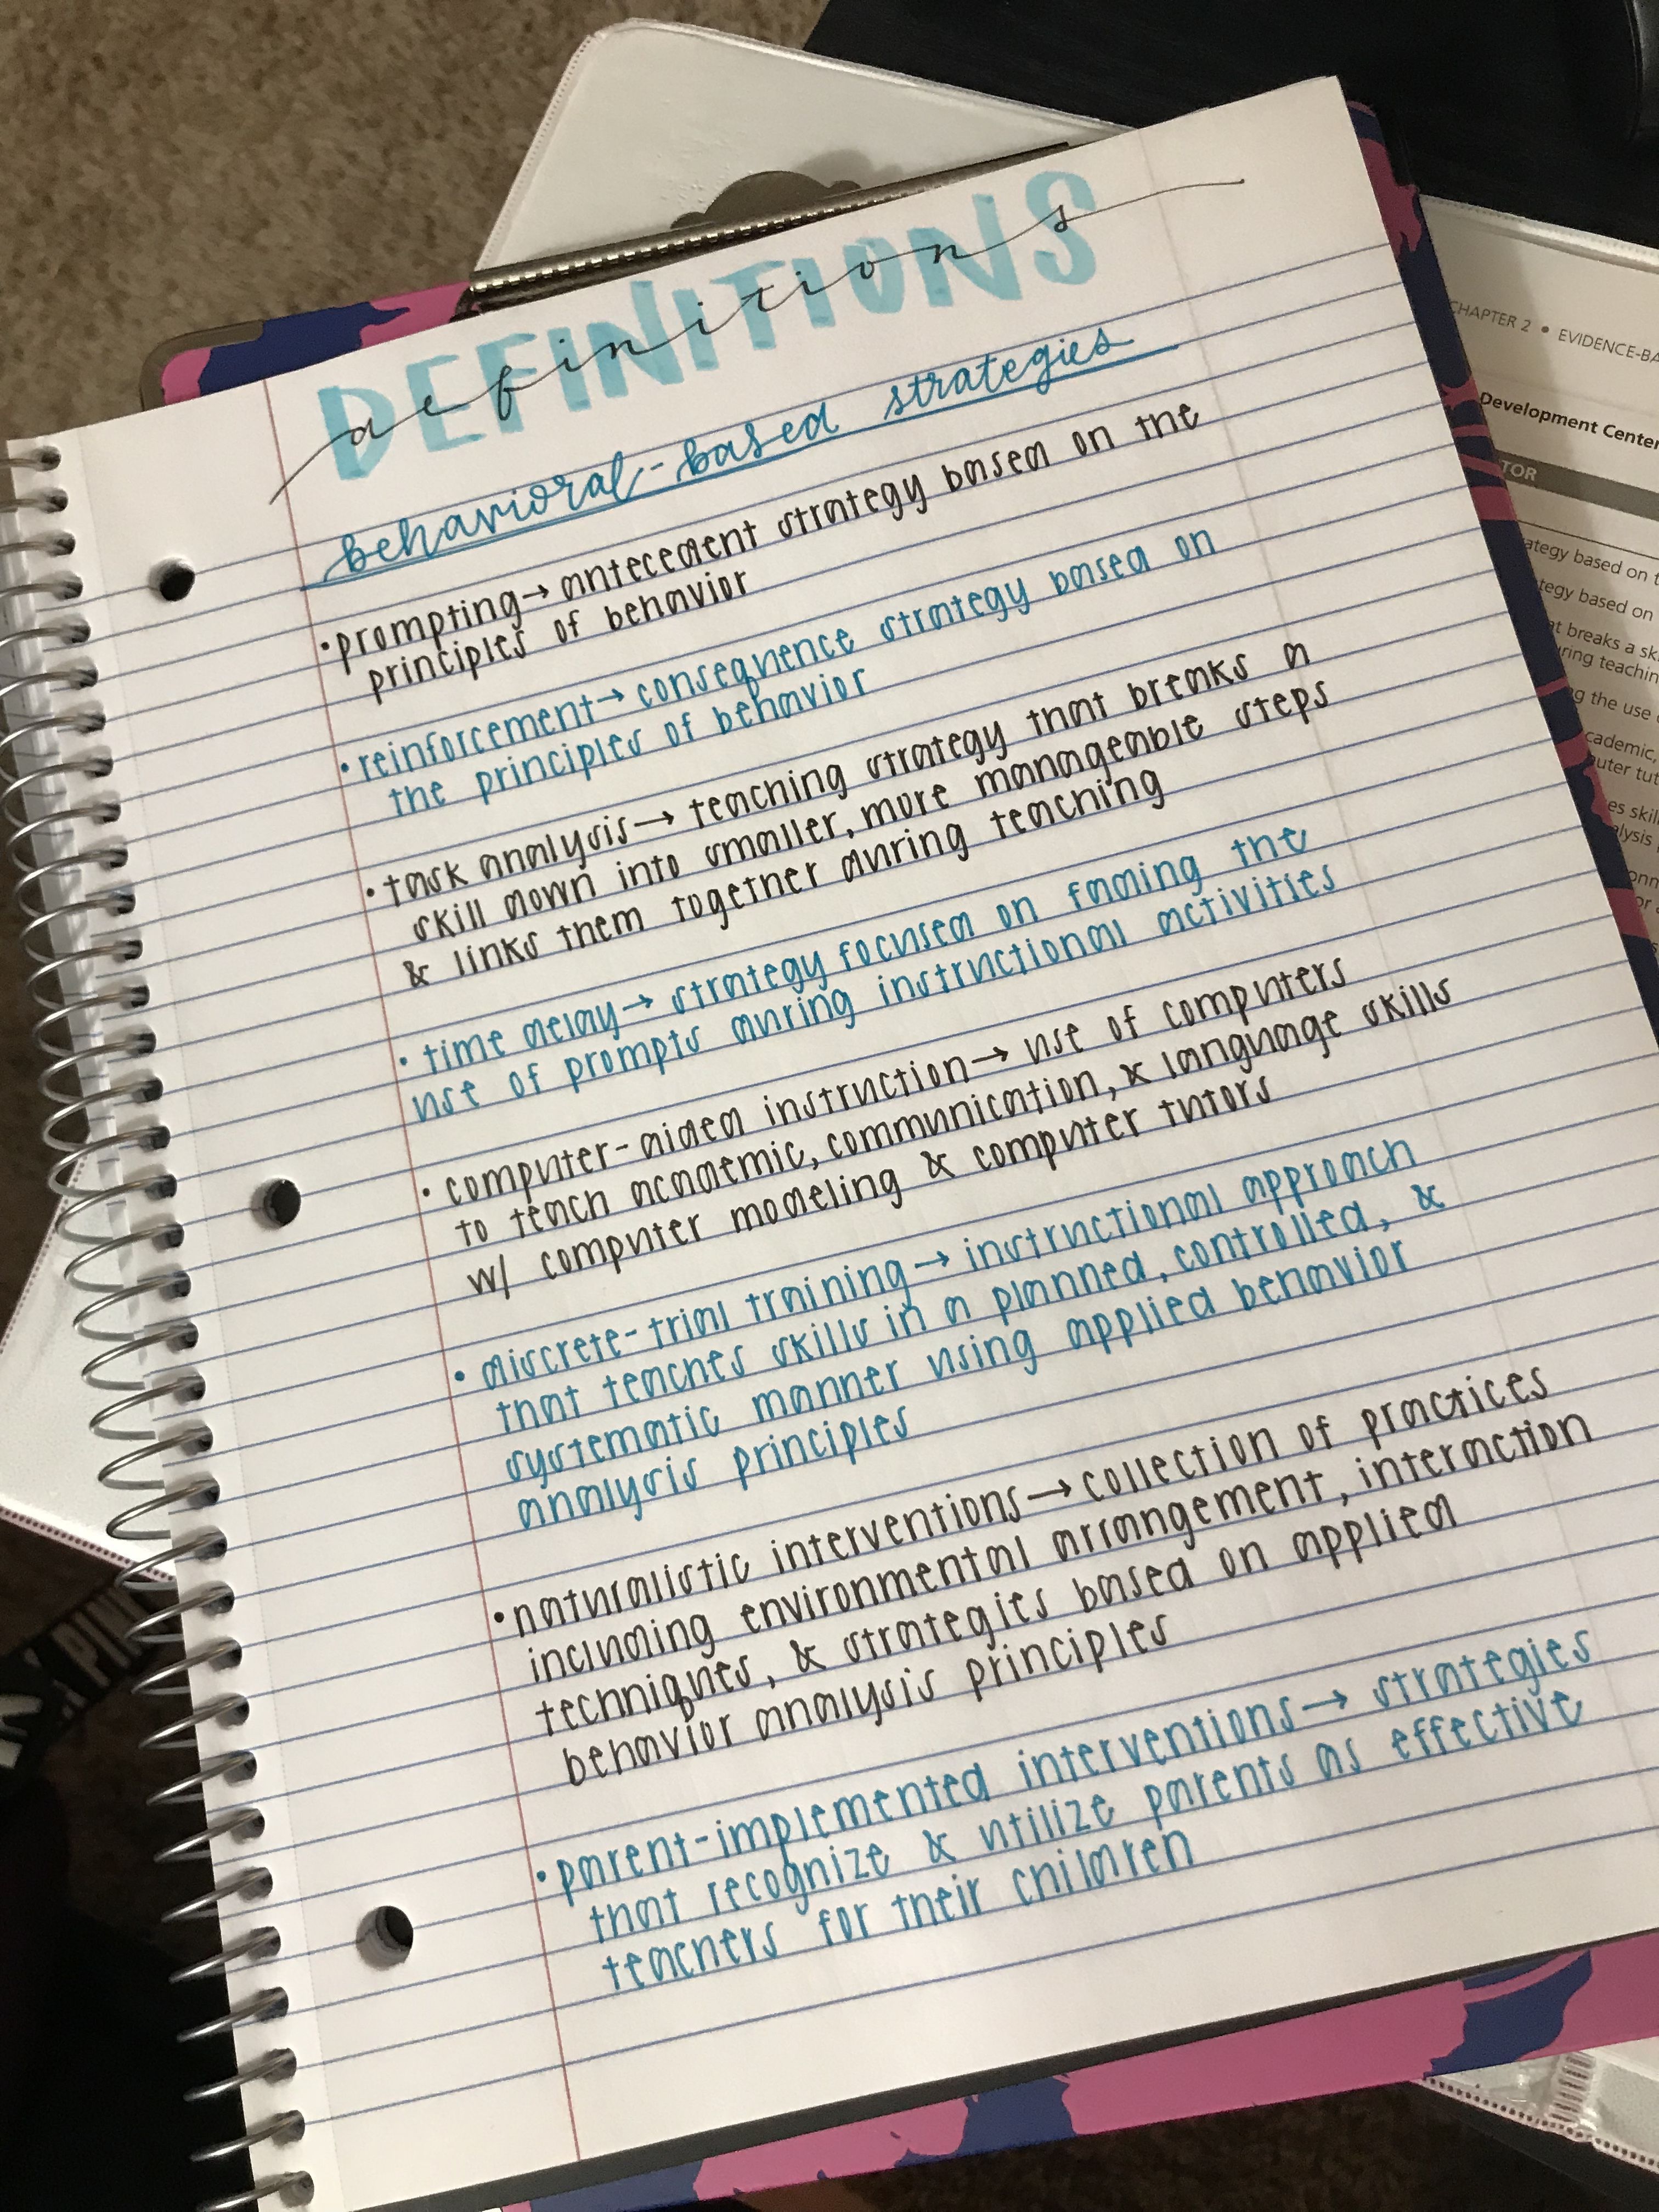 DEFINITIONS
definitions
behavioral-based strategies
• prompting → antecedent strategy based on the
principles of behavior
• reinforcement → consequence strategy based on
the principles of behavior
• task analysis → teaching strategy that breaks a
skill down into smaller, more manageable steps
& links them together during teaching
• time delay → strategy focused on fading the
use of prompts during instructional activities
• computer-aided instruction → use of computers
to teach academic, communication, & language skills
w/ computer modeling & computer tutors
• discrete-trial training → instructional approach
that teaches skills in a planned, controlled, &
systematic manner using applied behavior
analysis principles
• naturalistic interventions → collection of practices
including environmental arrangement, interaction
techniques, & strategies based on applied
behavior analysis principles
• parent-implemented interventions → strategies
that recognize & utilize parents as effective
teachers for their children
CHAPTER 2 • EVIDENCE-BA
Development Center
TOR
ategy based on t
tegy based on
at breaks a sk
uring teachin
g the use
cademic,
uter tut
es skil
alysis
onn
or
PIN